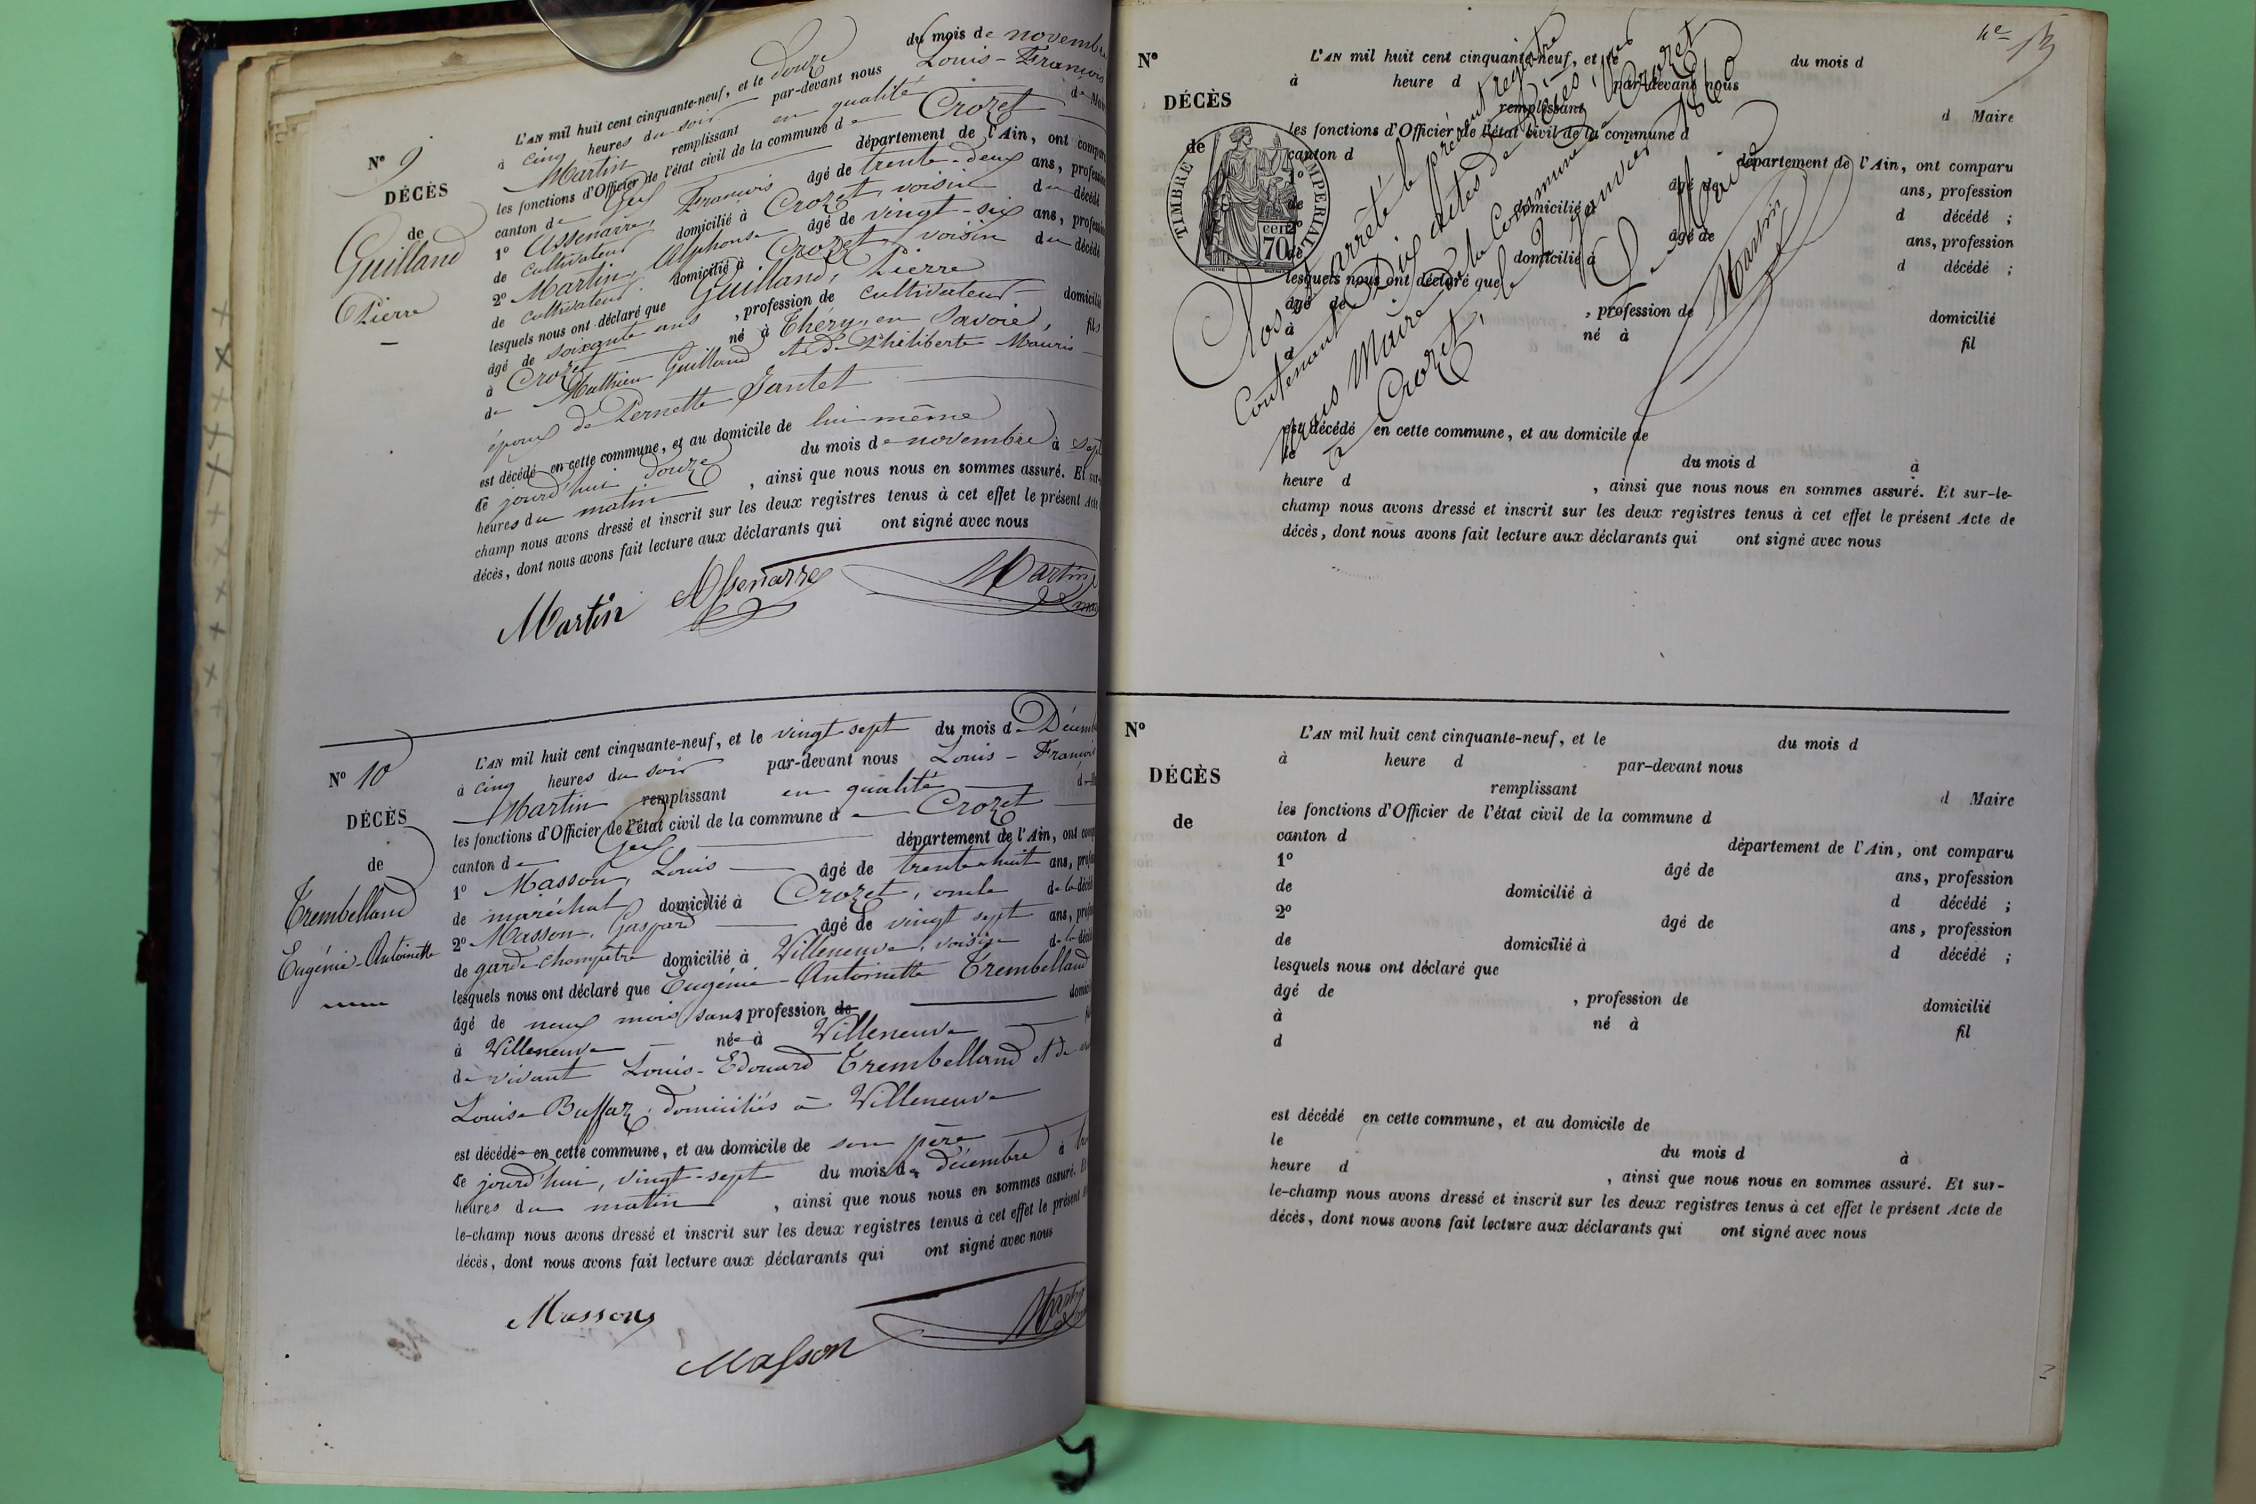 N° 9
DÉCÈS
de
Guilland
Pierre
L'AN mil huit cent cinquante-neuf, et le douze du mois de novembre
à cinq heures du soir par-devant nous Louis-François
Martin remplissant en qualité de
les fonctions d'Officier de l'état civil de la commune de Crozet
canton de Gex département de l'Ain, ont
1° Assenarre, François âgé de trente-deux ans, profession
de cultivateur domicilié à Crozet, voisin du décédé
2° Martin, Alphonse âgé de vingt-six ans, profession
de cultivateur domicilié à Crozet, voisin du décédé
lesquels nous ont déclaré que Guilland, Pierre
âgé de soixante ans, profession de cultivateur domicilié
à Crozet né à Théry, en Savoie, fils
de Mathieu Guilland et de Philiberte Mauris
époux de Pernette Jantet
est décédé en cette commune, et au domicile de lui-même
ce jourd'hui douze du mois de novembre à sept
heures du matin, ainsi que nous nous en sommes assuré. Et sur-
champ nous avons dressé et inscrit sur les deux registres tenus à cet effet le présent Acte
décès, dont nous avons fait lecture aux déclarants qui ont signé avec nous
Martin Assenarre Martin
N° 10
DÉCÈS
de
Trembelland
Eugénie-Antoinette
L'AN mil huit cent cinquante-neuf, et le vingt-sept du mois de Décembre
à cinq heures du soir par-devant nous Louis-François
Martin remplissant en qualité
les fonctions d'Officier de l'état civil de la commune de Crozet
canton de Gex département de l'Ain, ont
1° Masson, Louis âgé de trente-huit ans,
de maréchal domicilié à Crozet, oncle de la
2° Masson, Gaspard âgé de vingt sept ans,
de garde champêtre domicilié à Villeneuve, voisin de la
lesquels nous ont déclaré que Eugénie-Antoinette Trembelland
âgé de neuf mois, sans profession de
à Villeneuve née à Villeneuve
de vivant Louis-Edouard Trembelland et de
Louise Buffaz, domiciliés à Villeneuve
est décédée en cette commune, et au domicile de son père
ce jourd'hui, vingt-sept du mois de décembre à
heures du matin, ainsi que nous nous en sommes assuré. Et
le-champ nous avons dressé et inscrit sur les deux registres tenus à cet effet le présent
décès, dont nous avons fait lecture aux déclarants qui ont signé avec nous
Masson
Masson
Martin
N°
DÉCÈS
de
TIMBRE IMPERIAL
70 cen
L'AN mil huit cent cinquante-neuf, et le du mois d
à heure d par-devant nous
remplissant d Maire
les fonctions d'Officier de l'état civil de la commune d
canton d département de l'Ain, ont comparu
1° âgé de ans, profession
de domicilié à d décédé ;
2° âgé de ans, profession
de domicilié à d décédé ;
lesquels nous ont déclaré que
âgé de , profession de domicilié
à né à fil
d
est décédé en cette commune, et au domicile de
le du mois d à
heure d , ainsi que nous nous en sommes assuré. Et sur-le-
champ nous avons dressé et inscrit sur les deux registres tenus à cet effet le présent Acte de
décès, dont nous avons fait lecture aux déclarants qui ont signé avec nous
Clos et arrêté le présent registre
Contenant Dix actes de décès,
Maire de la Commune de Crozet
à Crozet, le janvier 1860
Le Maire
Martin
N°
DÉCÈS
de
L'AN mil huit cent cinquante-neuf, et le du mois d
à heure d par-devant nous
remplissant d Maire
les fonctions d'Officier de l'état civil de la commune d
canton d département de l'Ain, ont comparu
1° âgé de ans, profession
de domicilié à d décédé ;
2° âgé de ans, profession
de domicilié à d décédé ;
lesquels nous ont déclaré que
âgé de , profession de domicilié
à né à fil
d
est décédé en cette commune, et au domicile de
le du mois d à
heure d , ainsi que nous nous en sommes assuré. Et sur-
le-champ nous avons dressé et inscrit sur les deux registres tenus à cet effet le présent Acte de
décès, dont nous avons fait lecture aux déclarants qui ont signé avec nous